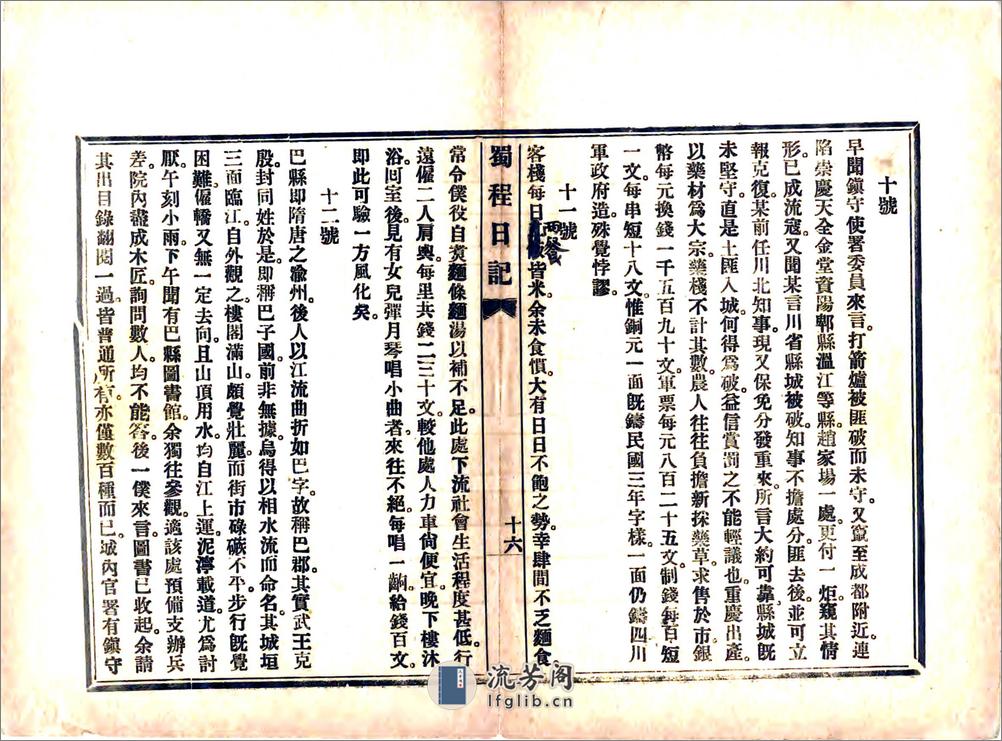 十號
早聞鎮守使署委員來言打箭爐被匪破而未守又竄至成都附近連
陷崇慶天全金堂資陽郫縣溫江等縣趙家場一處更付一炬窺其情
形已成流寇又聞某言川省縣城被破知事不擔處分匪去後並可立
報克復某前任川北知事現又保免分發重來所言大約可靠縣城旣
未堅守直是土匪入城何得爲破益信賞罰之不能輕議也重慶出產
以藥材爲大宗藥棧不計其數農人往往負擔新採藥草求售於市銀
幣每元換錢一千五百九十文軍票每元八百二十五文制錢每百短
一文每串短十八文惟銅元一面旣鑄民國三年字樣一面仍鑄四川
軍政府造殊覺悖謬
十一號
客棧每日兩餐皆米余未食慣大有日日不飽之勢幸肆間不乏麵食
蜀程日記
十六
常令僕役自煑麵條麵湯以補不足此處下流社會生活程度甚低行
遠僱二人肩輿每里共錢二三十文較他處人力車尙便宜晚下樓沐
浴回室後見有女兒彈月琴唱小曲者來往不絕每唱一齣給錢百文
即此可驗一方風化矣
十二號
巴縣即隋唐之渝州後人以江流曲折如巴字故稱巴郡其實武王克
殷封同姓於是即稱巴子國前非無據烏得以相水流而命名其城垣
三面臨江自外觀之樓閣滿山頗覺壯麗而街市碌碡不平步行旣覺
困難僱轎又無一定去向且山頂用水均自江上運泥濘載道尤爲討
厭午刻小雨下午聞有巴縣圖書館余獨往參觀適該處預備支辦兵
差院內盡成木匠詢問數人均不能答後一僕來言圖書已收起余請
其出目錄翻閱一過皆普通所有亦僅數百種而已城內官署有鎮守
流芳閣
lfglib.cn